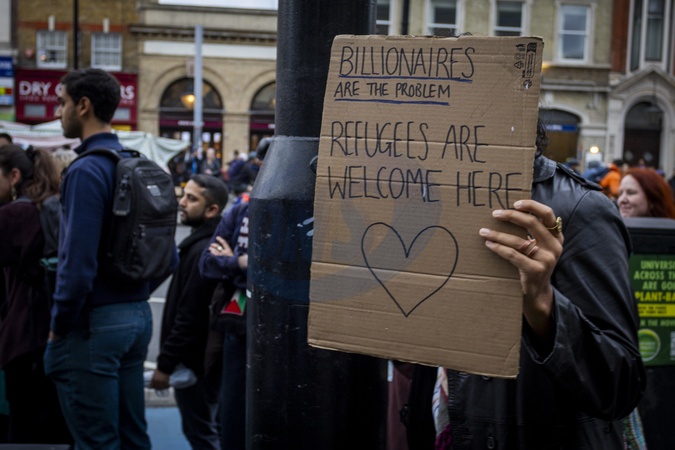 BILLIONAIRES
ARE THE PROBLEM
REFUGEES ARE
WELCOME HERE
DRY
UNIVER
ACROSS
ARE GO
PLANT-BA